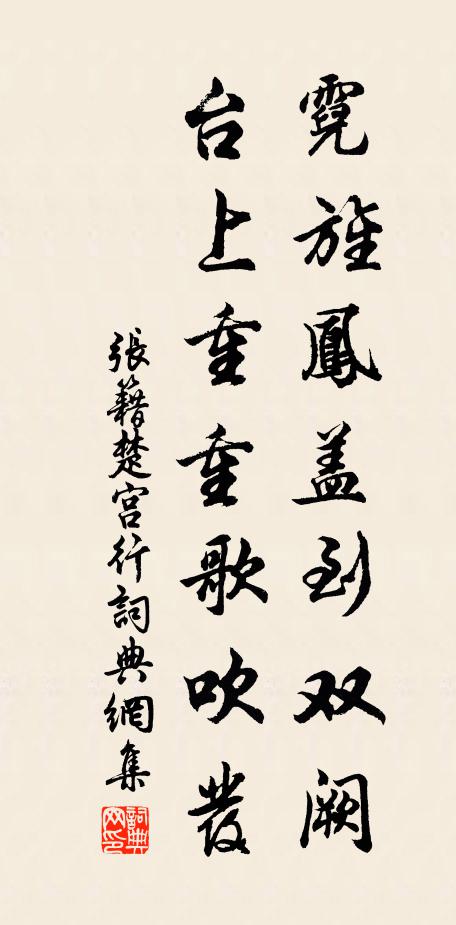 霓旌鳳盖到双阙
台上重重歌吹發
張籍楚宫行詞典網集
詞典网印